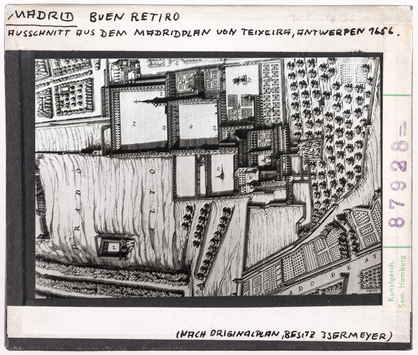 MADRID BUEN RETIRO
AUSSCHNITT AUS DEM MADRIDPLAN VON TEIXEIRA, ANTWERPEN 1656.
PRADO
ALTO
87928
Kunstgesch.
Sem. Hamburg
(NACH ORIGINALPLAN, BESITZ ISERMEYER)